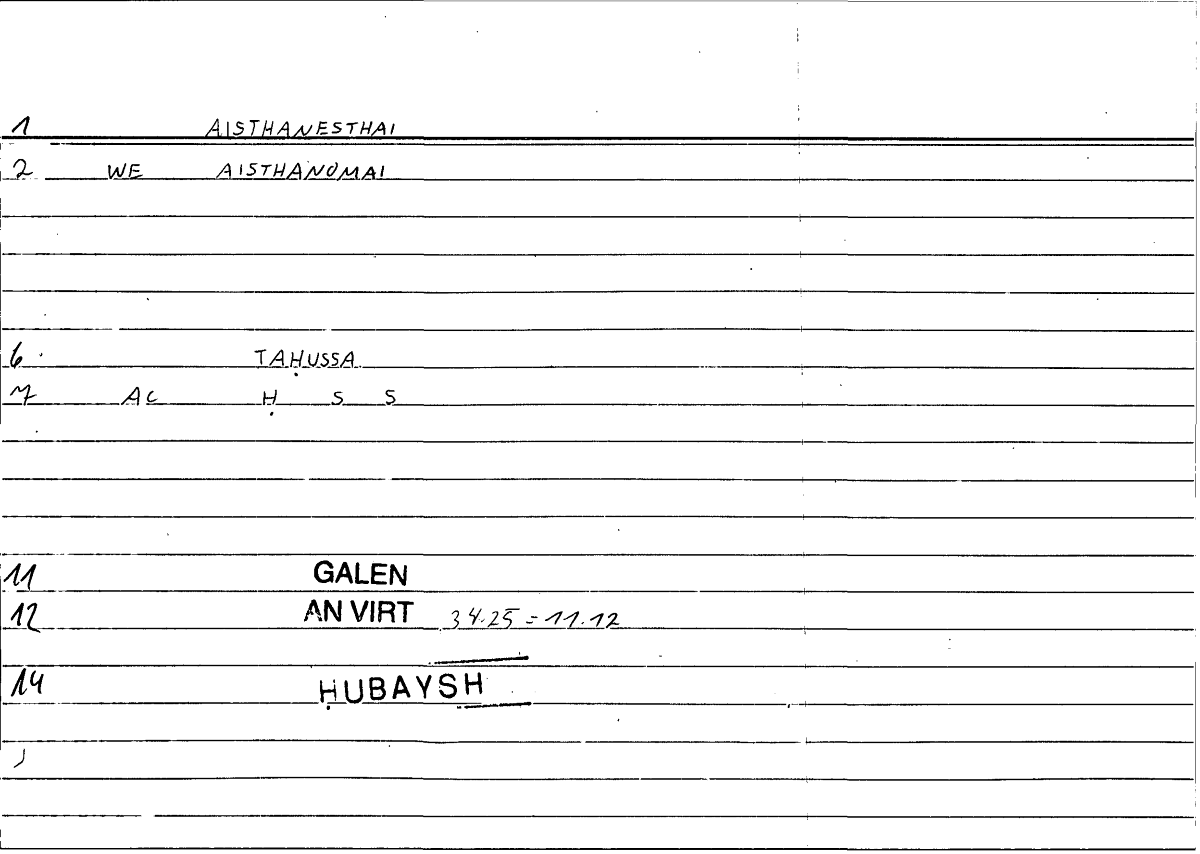 1 AISTHANESTHAI
2 WE AISTHANOMAI
6 TAḤUSSA
7 AC Ḥ S S
11 GALEN
12 AN VIRT 34.25 = 11.12
14 ḤUBAYSH